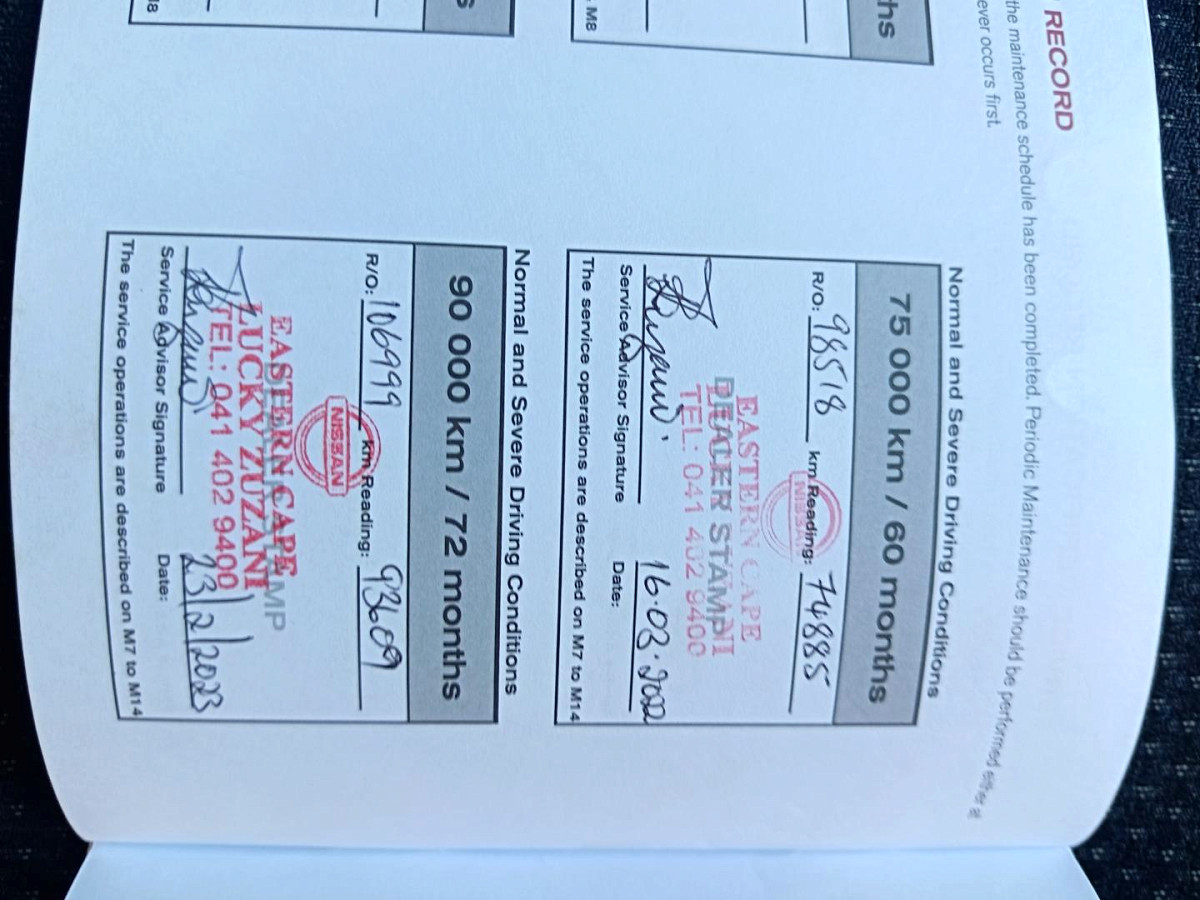 RECORD
the maintenance schedule has been completed. Periodic Maintenance should be performed either at
ever occurs first.
ths
M8
Normal and Severe Driving Conditions
75 000 km / 60 months
R/O: 98518 km Reading: 74885
NISSAN
EASTERN CAPE
DEALER STAMP
TEL: 041 402 9400
16.03.2022
Service Advisor Signature Date:
The service operations are described on M7 to M14
s
M8
Normal and Severe Driving Conditions
90 000 km / 72 months
R/O: 106999 km Reading: 93609
NISSAN
EASTERN CAPE
LUCKY ZUZANI
TEL: 041 402 9400
23/2/2023
Service Advisor Signature Date:
The service operations are described on M7 to M14